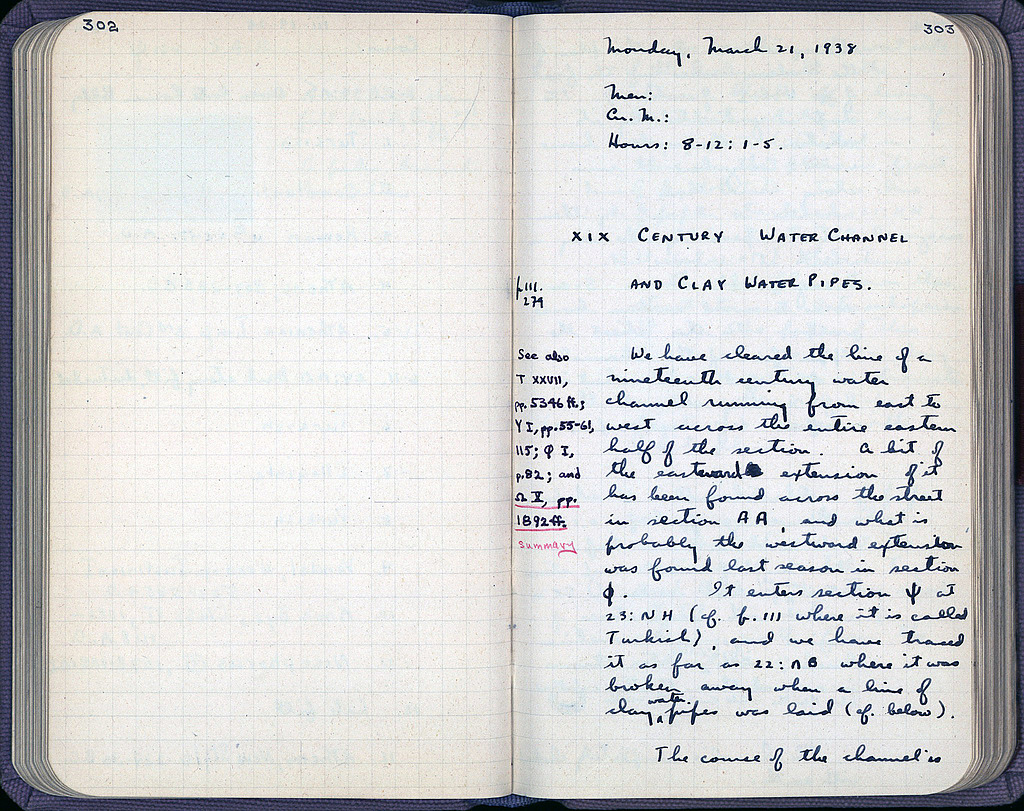 302
303
Monday, March 21, 1938
Men:
Cu. M.:
Hours: 8-12; 1-5.
XIX CENTURY WATER CHANNEL
AND CLAY WATER PIPES.
p. 111.
279
See also
T XXVII,
pp. 5346 ff.;
Y I, pp. 55-61,
115; Φ I,
p. 82; and
Ω X, pp.
1892 ff.
summary
We have cleared the line of a
nineteenth century water
channel running from east to
west across the entire eastern
half of the section. A bit of
the eastward extension of it
has been found across the street
in section AA, and what is
probably the westward extension
was found last season in section
φ. It enters section ψ at
23:NH (cf. p. 111 where it is called
Turkish), and we have traced
it as far as 22:ΛB where it was
broken away when a line of
clay water pipes was laid (cf. below).
The course of the channel is